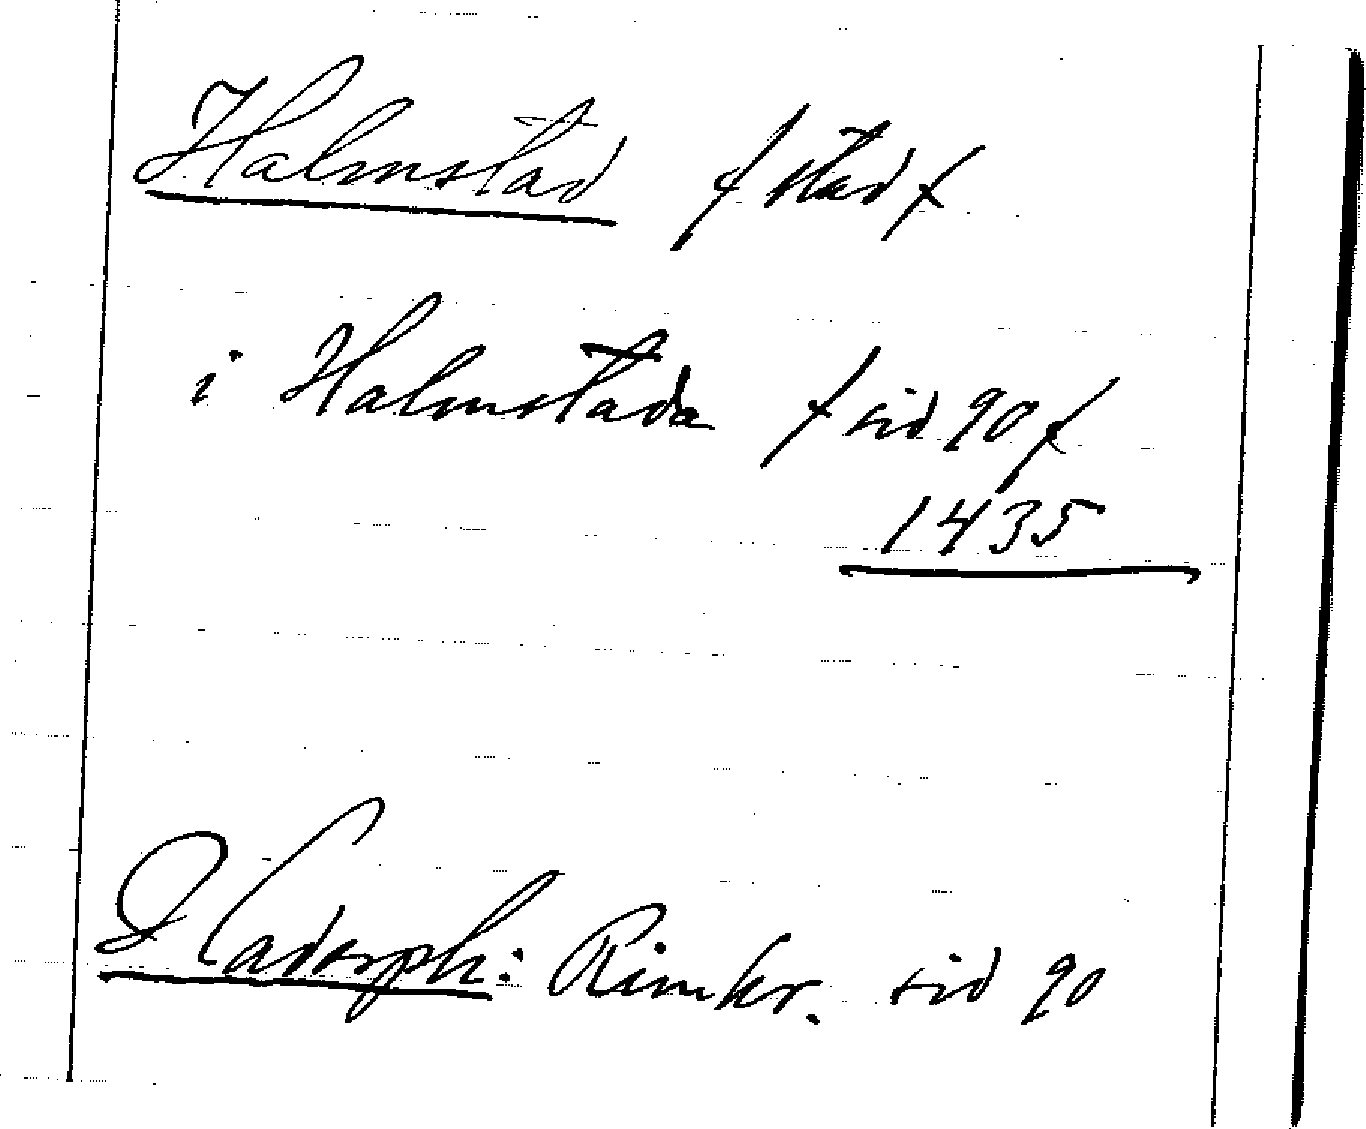 Halmstad /stad/
i Halmstada /sid 90/
1435
Hadorph: Rimkr. sid 90